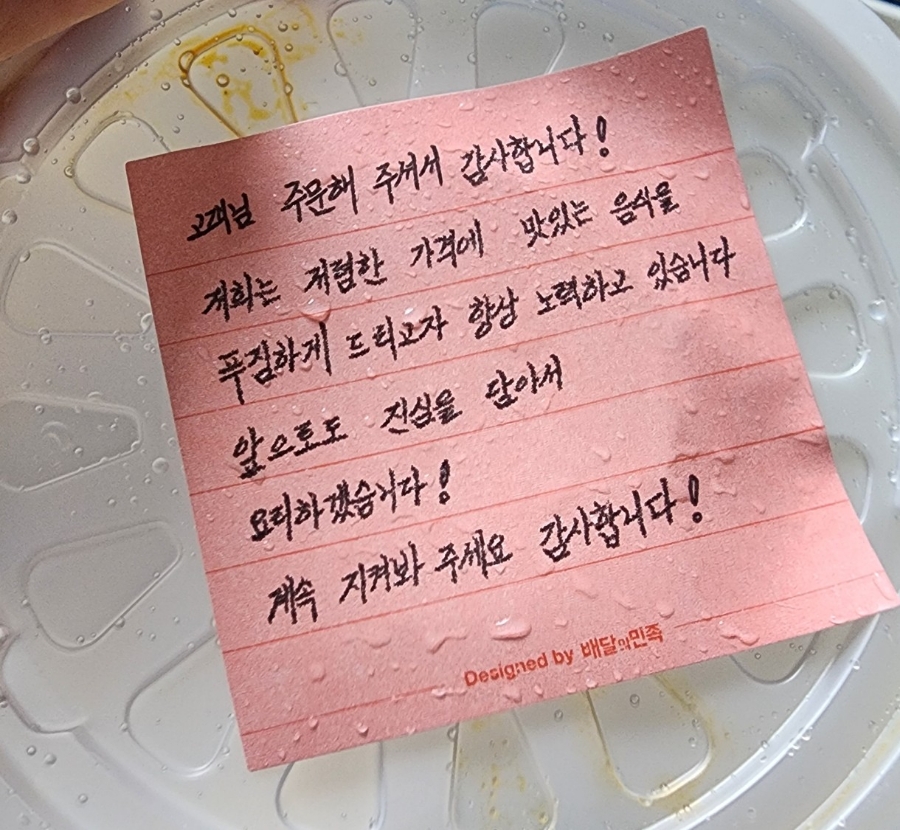 고객님 주문해 주셔서 감사합니다!
저희는 저렴한 가격에 맛있는 음식을
푸짐하게 드리고자 항상 노력하고 있습니다
앞으로도 진심을 담아서
요리하겠습니다!
계속 지켜봐 주세요 감사합니다!
Designed by 배달의민족